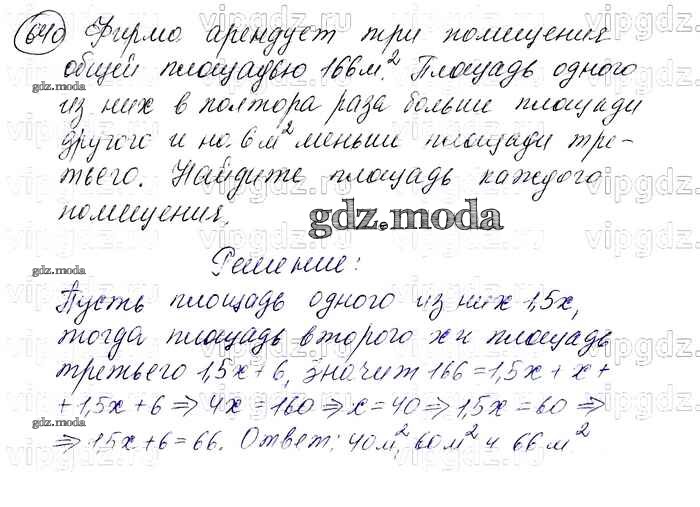 640 Фирма арендует три помещения
общей площадью 166 м². Площадь одного
из них в полтора раза больше площади
другого и на 6 м² меньше площади тре-
тьего. Найдите площадь каждого
помещения.
gdz.moda
Решение:
Пусть площадь одного из них 1,5x,
тогда площадь второго x и площадь
третьего 1,5x + 6, значит 166 = 1,5x + x +
+ 1,5x + 6 ⇒ 4x = 160 ⇒ x = 40 ⇒ 1,5x = 60 ⇒
⇒ 1,5x + 6 = 66. Ответ: 40 м², 60 м² и 66 м²
gdz.moda
gdz.moda
gdz.moda
vipgdz.ru